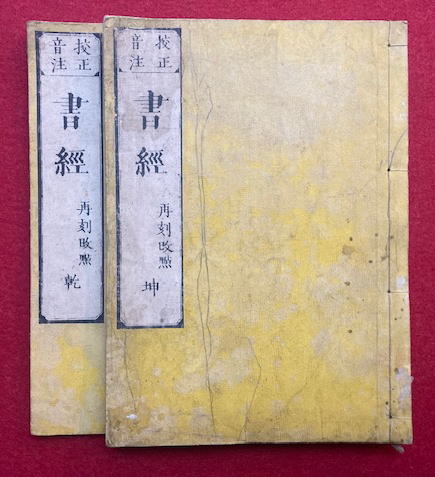 挍正
音注
書經
再刻改點
坤
挍正
音注
書經
再刻改點
乾